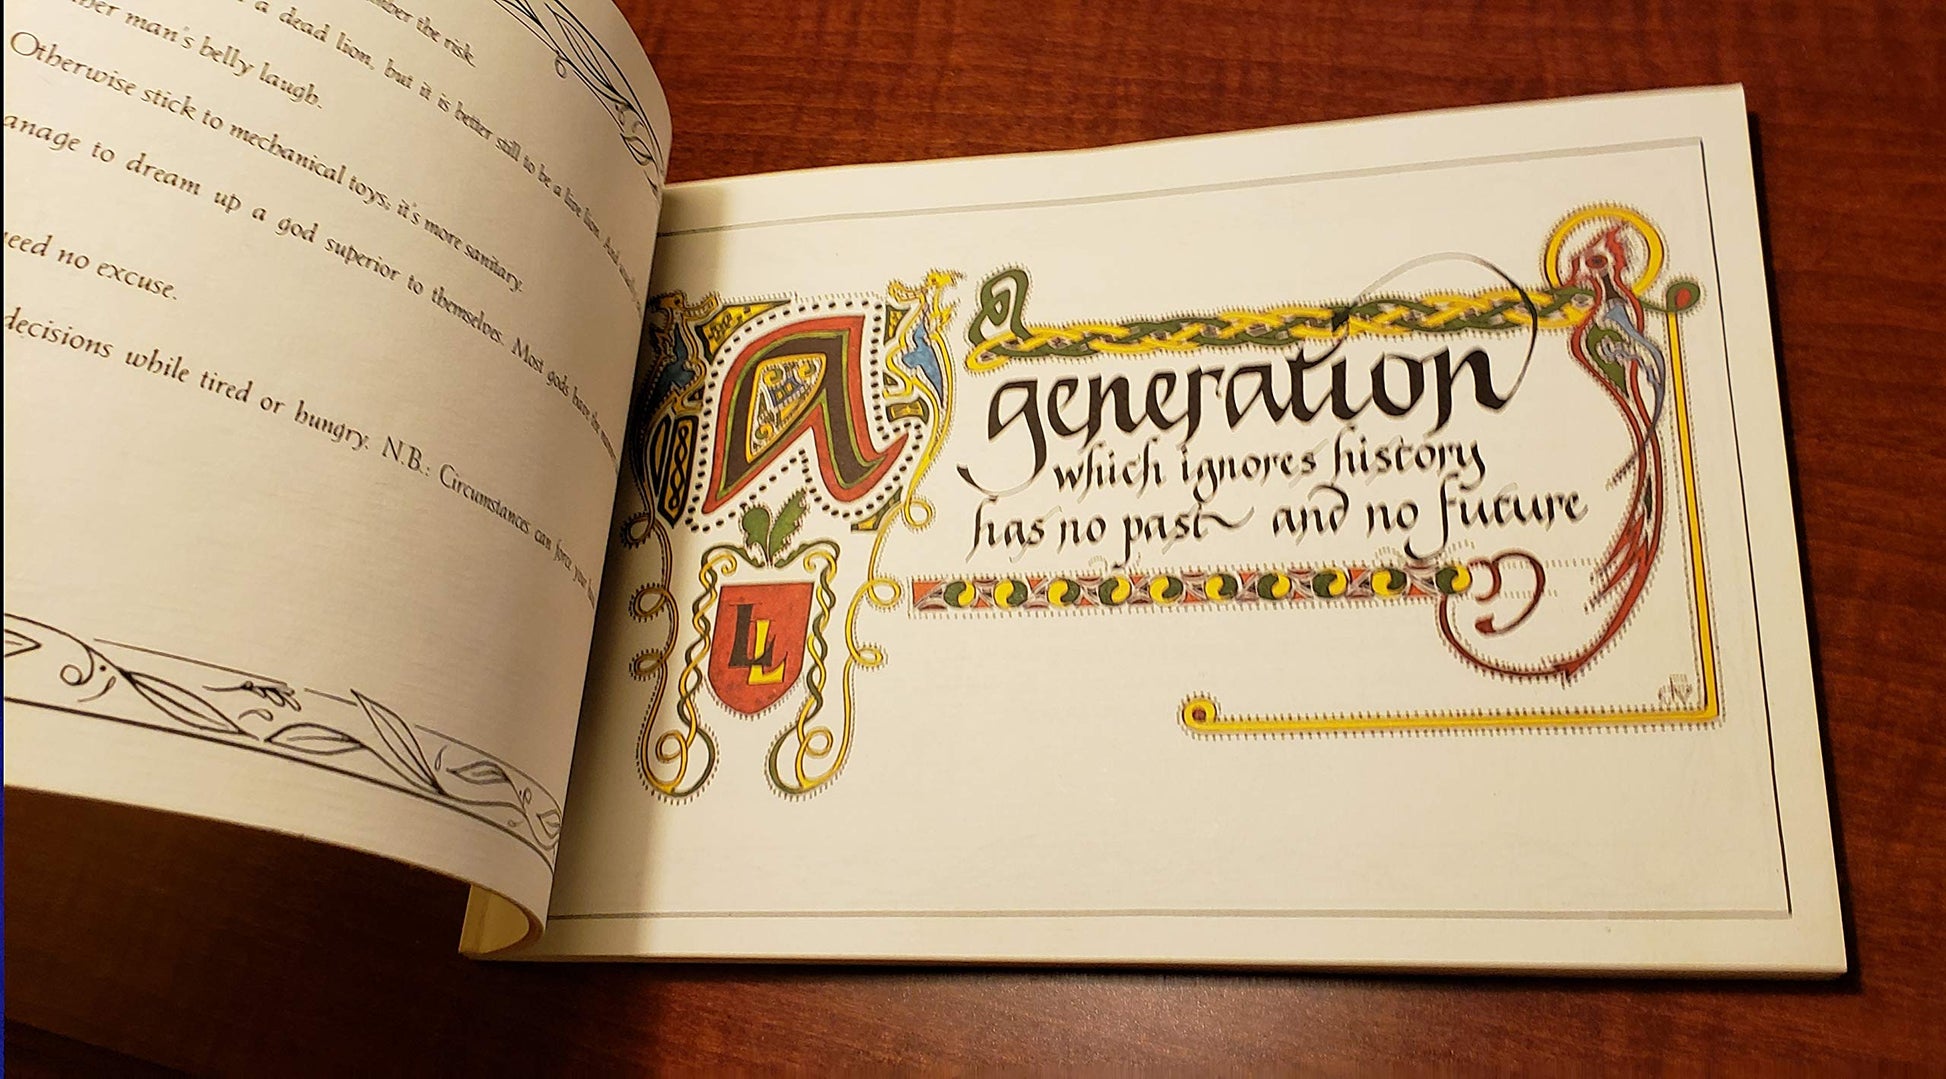 the risk.
a dead lion, but it is better still to be a live lion. And
man's belly laugh.
Otherwise stick to mechanical toys; it's more sanitary.
to dream up a god superior to themselves. Most gods have the
no excuse.
decisions while tired or hungry. N.B.: Circumstances can force your
a
generation
which ignores history
has no past and no future
LL